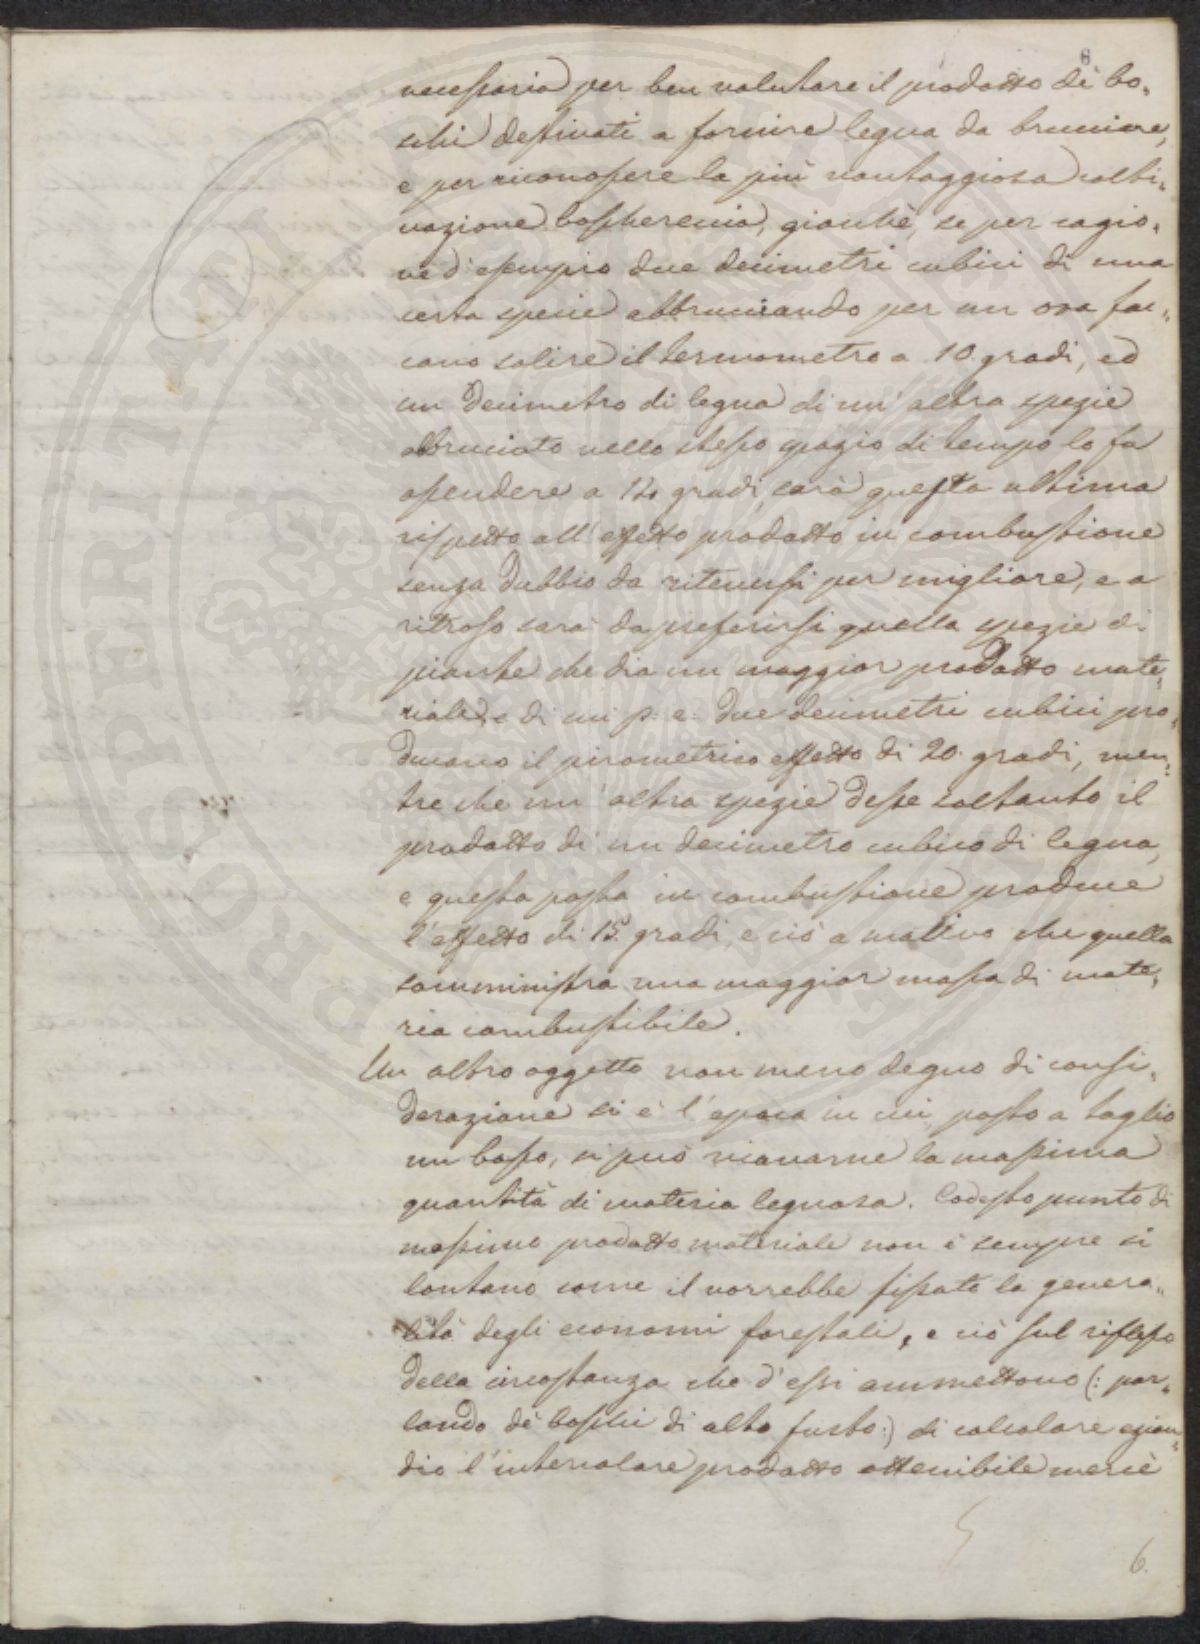 6
necessaria per ben valutare il prodotto de' bo-
schi destinati a fornire legna da bruciare,
e per riconoscere la più vantaggiosa colti-
vazione boschereccia, giacchè, se per cagio-
ne d'esempio due decimetri cubici di una
certa specie abbruciando per un ora fac-
ciano salire il termometro a 10 gradi, ed
un decimetro di legna di un'altra spezie
abbruciato nello stesso spazio di tempo lo fa
ascendere a 12 gradi, sarà questa ultima
rispetto all'effetto prodotto in combustione
senza dubbio da ritenersi per migliore, e a
ritroso sarà da preferirsi quella spezie di
piante che dia un maggior prodotto mate-
riale, e di cui p: e: due decimetri cubici pro-
ducano il pirometrico effetto di 20. gradi, men-
tre che un'altra spezie desse soltanto il
prodotto di un decimetro cubico di legna,
e questa posta in combustione produce
l'effetto di 15. gradi, e ciò a motivo che quella
somministra una maggior massa di mate-
ria combustibile.
Un altro oggetto non meno degno di consi-
derazione si è l'epoca in cui, posto a taglio
un bosco, si può ricavarne la massima
quantità di materia legnosa. Codesto punto di
massimo prodotto materiale non è sempre sì
lontano come il vorrebbe fissato la genera-
lità degli economi forestali, e ciò sul riflesso
della circostanza che d'essi ammettono (: par-
lando de' boschi di alto fusto:) di calcolare ezian-
dio l'intercolare prodotto ottenibile mercè
6.
PROSPERITATI